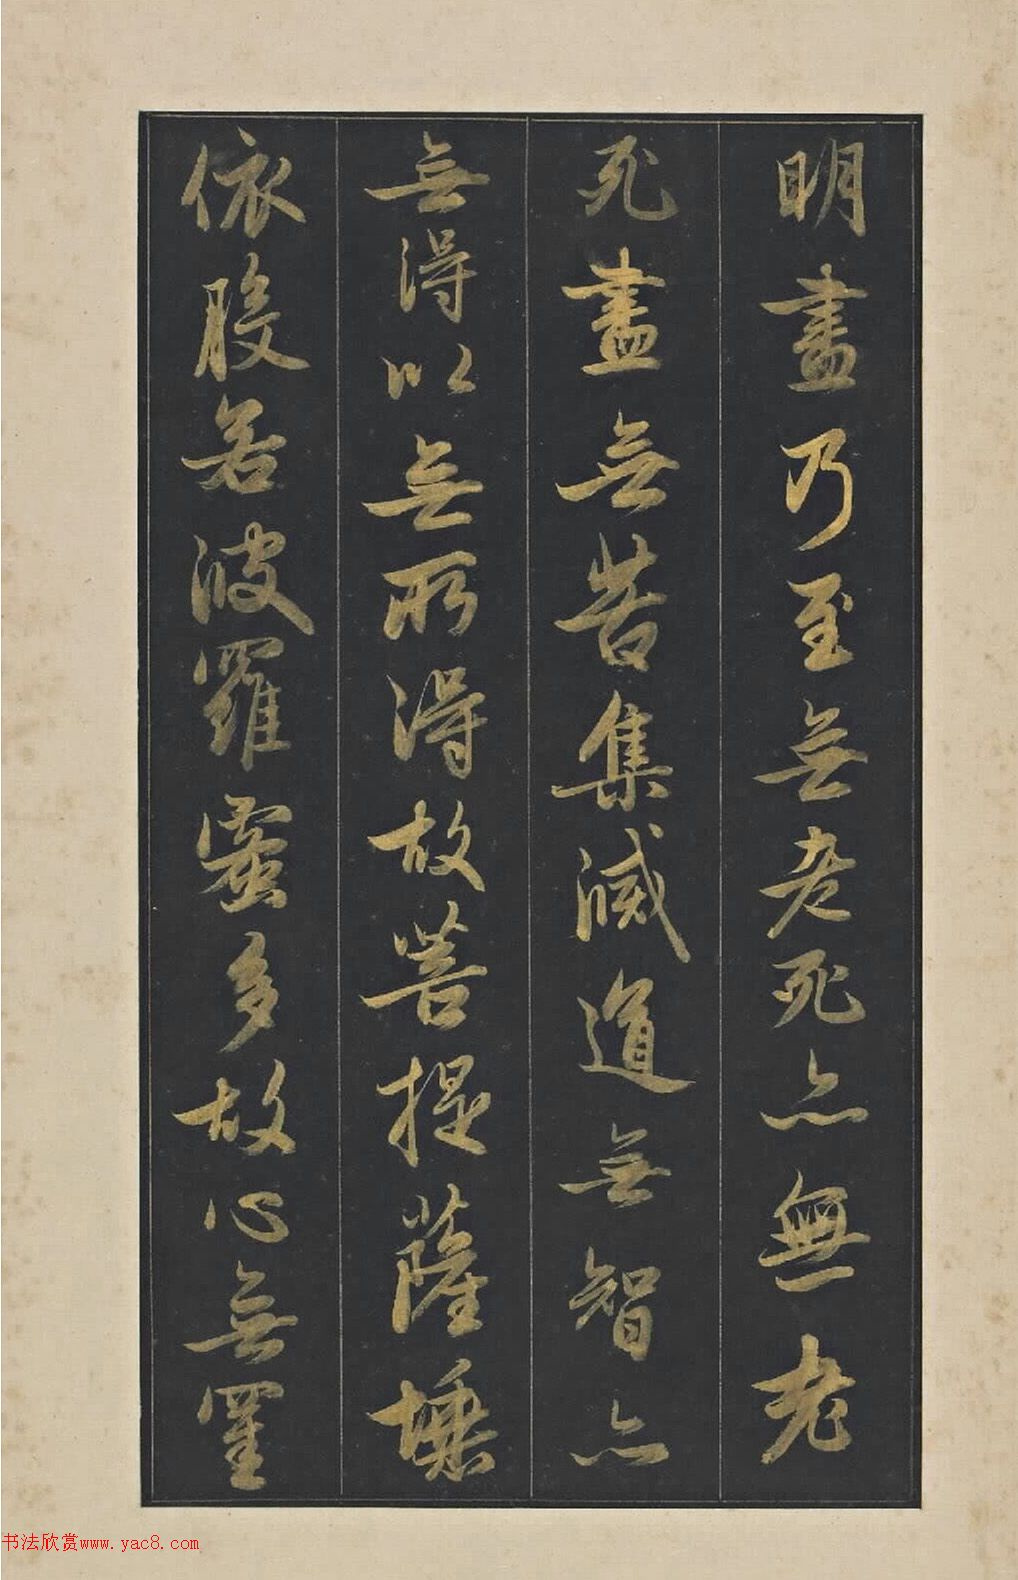 明盡乃至無老死亦無老
死盡無苦集滅道無智亦
無得以無所得故菩提薩埵
依般若波羅蜜多故心無罣
书法欣赏www.yac8.com